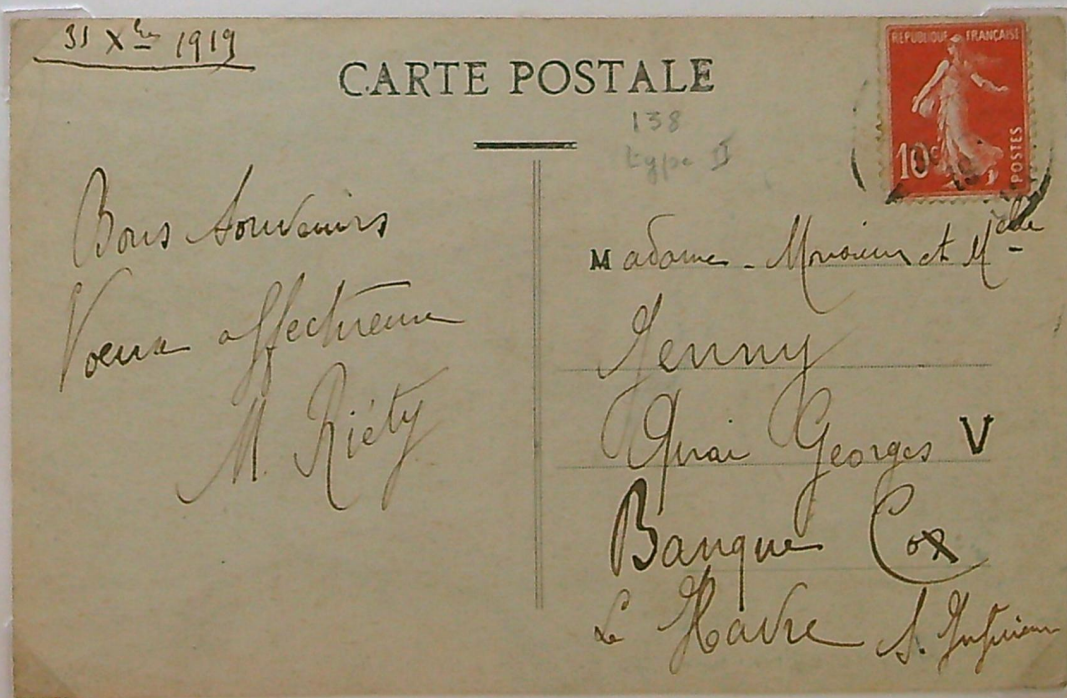 31 Xbre 1919
CARTE POSTALE
REPUBLIQUE FRANÇAISE
10c
POSTES
138
type II
Bons Souvenirs
Voeux affectueux
M. Riéty
Madame - Monsieur et Melle
Jenny
Quai Georges V
Banque Cox
Le Havre S. Inférieure